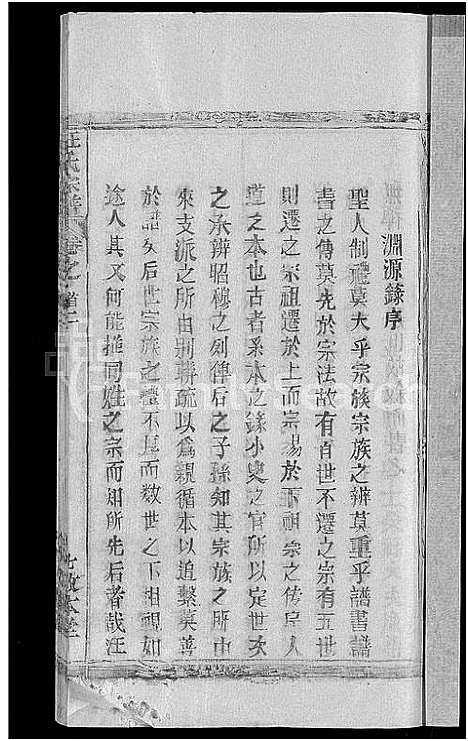 淵源錄序
聖人制禮莫大乎宗族宗族之辨莫重乎譜書譜
書之傳莫先於宗法故有百世不遷之宗有五世
則遷之宗祖遷於上而宗易於下祖宗之傳皇人
道之本也古者系本之錄小史之官所以定世次
之承辨昭穆之列俾后之子孫知其宗族之所由
來支派之所由别聯疏以為親循本以追繫莫善
於譜矣后世宗族之禮不具而数世之下相視如
途人其又何能推同姓之宗而知所先后者哉汪
汪氏宗譜 卷之首二
敬本堂